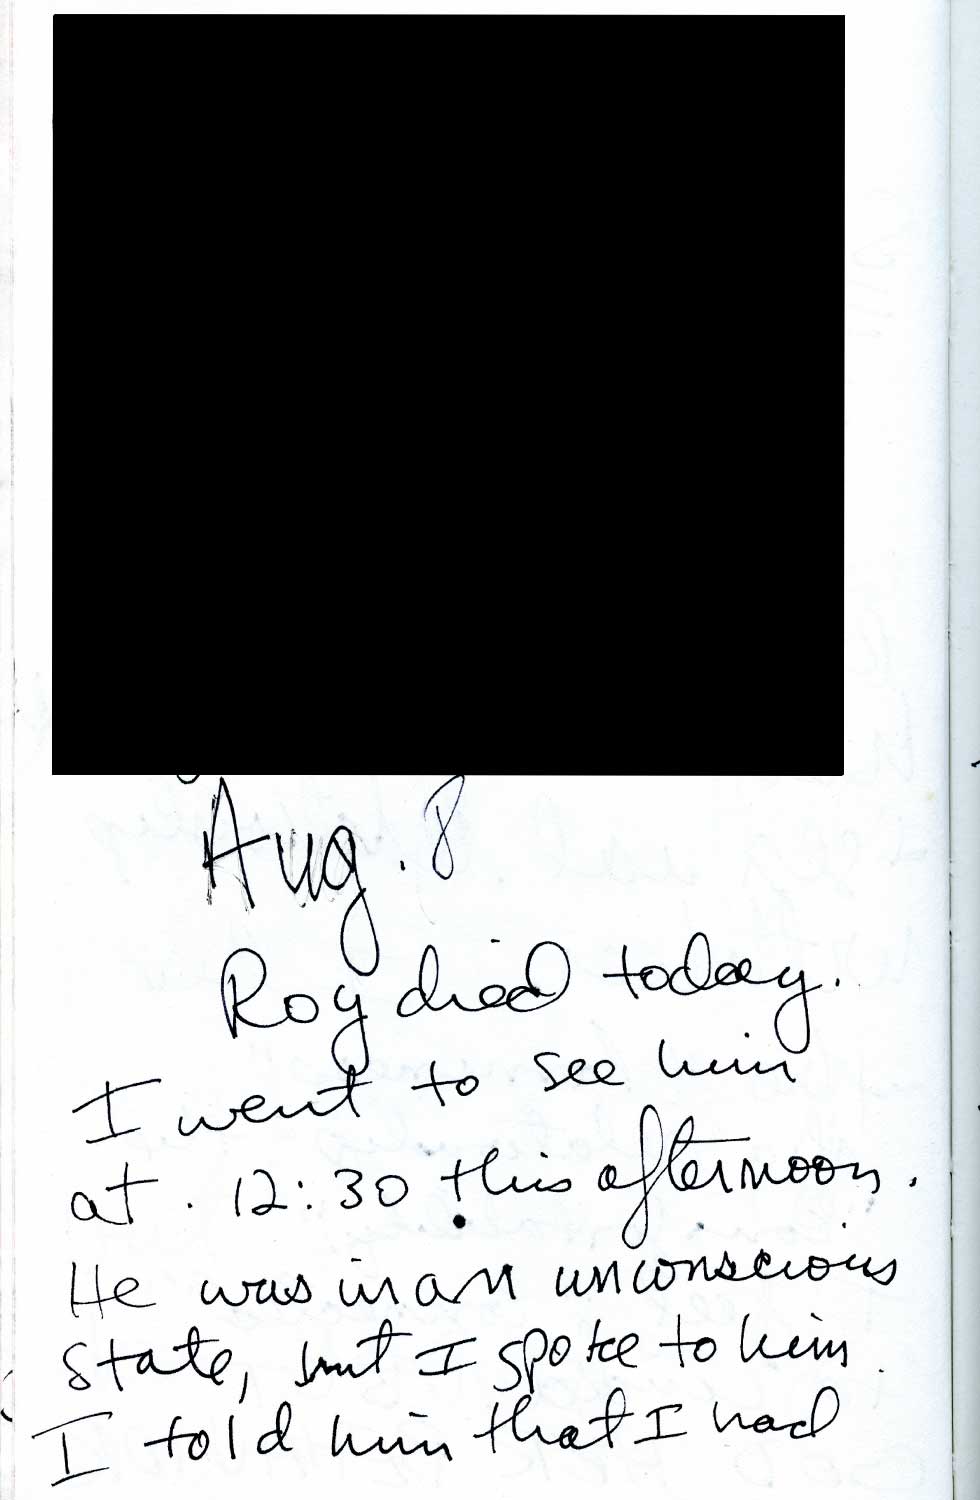 Aug. 8
Roy died today.
I went to see him
at. 12:30 this afternoon.
He was in an unconscious
state, but I spoke to him.
I told him that I had